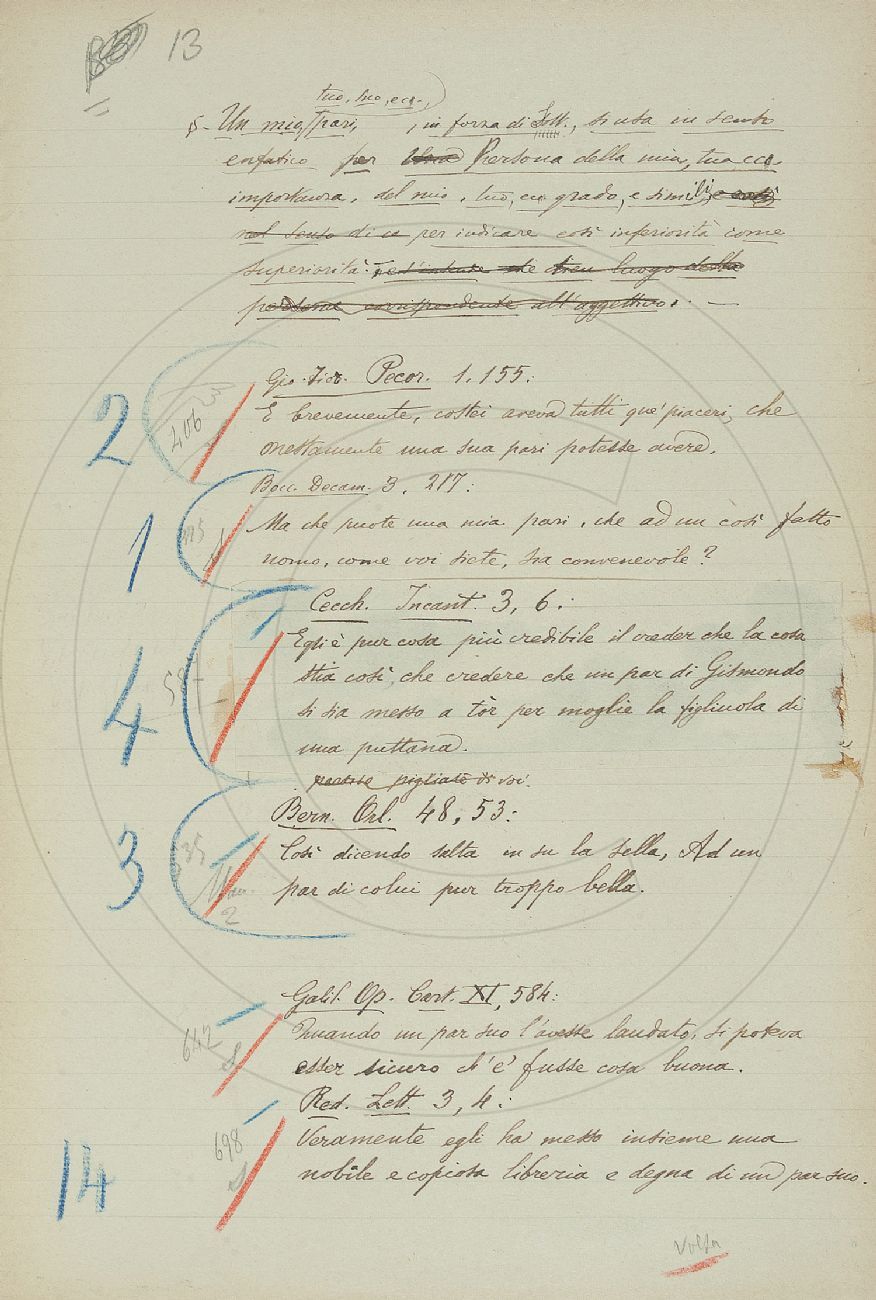 13
tuo, suo, ecc.,
§.- Un mio, pari, , in forza di Sost., si usa in senso
enfatico per Persona della mia, tua ecc.
importanza, del mio, tuo, ec grado, e simili, e così
nel senso di ce per indicare così inferiorità come
superiorità. ed intende che tien luogo della
persona corrispondente all'aggettivo. —
Gio. Fior. Pecor. 1. 155:
2
406
E brevemente, costei aveva tutti que' piaceri, che
onestamente una sua pari potesse avere.
Bocc. Decam. 3. 217:
1
Ma che puote una mia pari, che ad un così fatto
uomo, come voi siete, sia convenevole?
Cecch. Incant. 3, 6:
Egli è pur cosa più credibile il creder che la cosa
4
stia così, che credere che un par di Gismondo
si sia messo a tòr per moglie la figliuola di
una puttana.
pigliate di voi.
Bern. Orl. 48, 53:
3
Così dicendo salta in su la sella, Ad un
par di colui pur troppo bella.
2
Galil. Op. Cart. XI, 584:
642
Quando un par suo l'avesse laudato, si poteva
esser sicuro ch'e' fusse cosa buona.
Red. Lett. 3, 4:
698
Veramente egli ha messo insieme una
14
nobile e copiosa libreria e degna di un par suo.
Volta